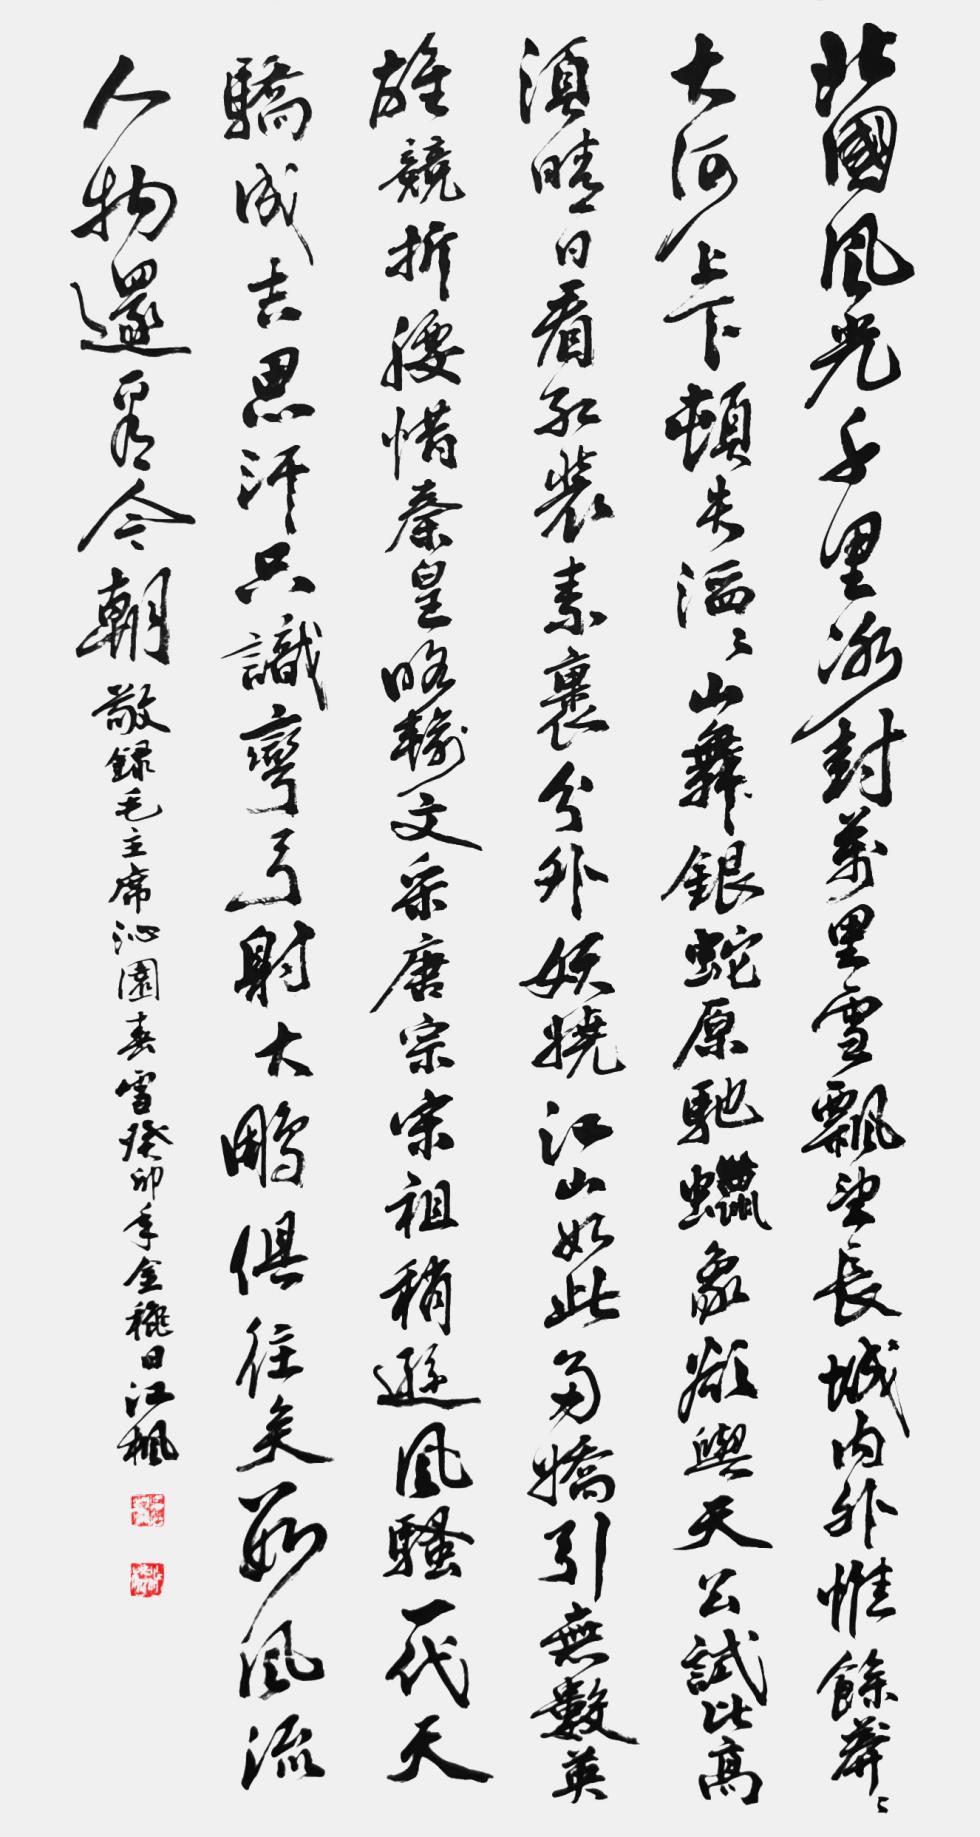 北國風光千里冰封萬里雪飄望長城內外惟餘莽〻
大河上下頓失滔〻山舞銀蛇原馳蠟象欲與天公試比高
須晴日看紅裝素裹分外妖嬈江山如此多嬌引無數英
雄競折腰惜秦皇略輸文采唐宗宋祖稍遜風騷一代天
驕成吉思汗只識彎弓射大鵰俱往矣數風流
人物還看今朝 敬錄毛主席沁園春雪癸卯年金穐日江楓